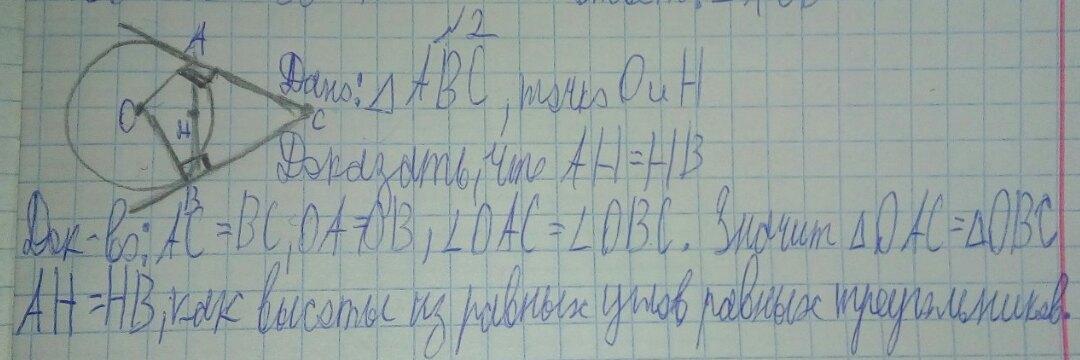 №2
Дано: △ ABC, точки O и H
Доказать, что AH=HB
Док-во: AC=BC, OA=OB, ∠OAC=∠OBC. Значит △OAC=△OBC
AH=HB, как высоты из равных углов равных треугольников.
A
O
H
C
B